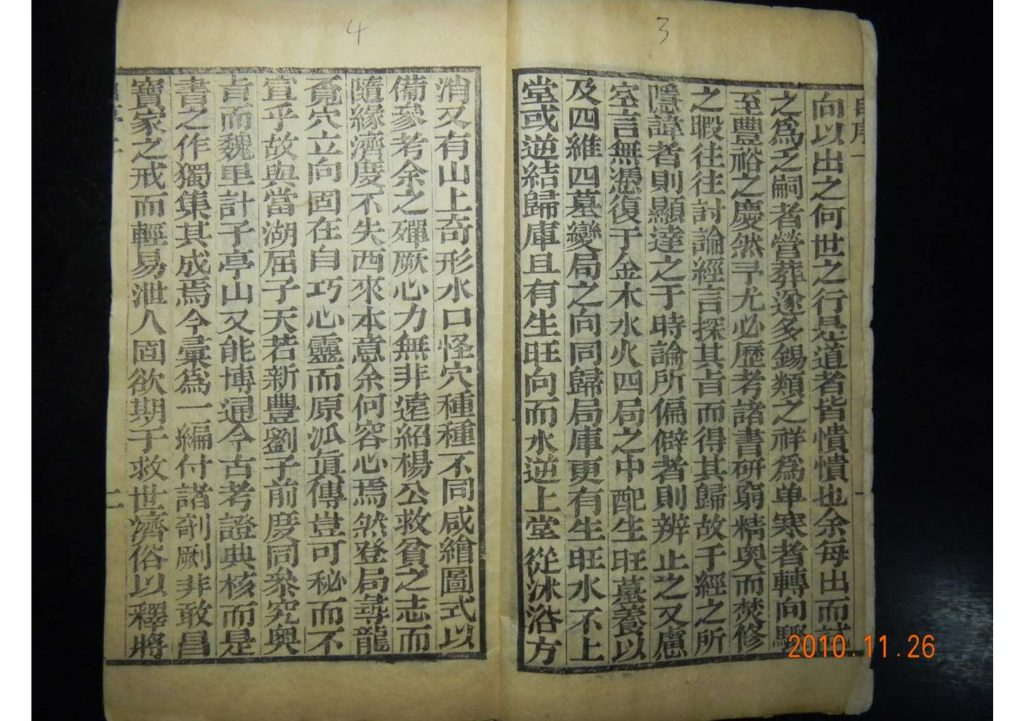 3
自序
一
向以出之何世之行是道者皆憒憒也余每出而
之為之嗣者營葬逐多錫類之祥為单寒者轉向
至豐裕之慶然予尤必歷考諸書研窮精奧而焚修
之暇往往討論經言探其貞而得其歸故于經之所
隱諱者則顯達之于時論所偏僻者則辨止之又慮
空言無憑復于金木水火四局之中配生旺墓養以
及四維四墓變局之向同歸局庫更有生旺水不上
堂或逆結歸庫且有生旺向而水逆上堂從沐浴方
4
消又有山上奇形水口怪穴種種不同咸繪圖式以
備參考余之殫厥心力無非遠紹楊公救貧之志而
隨緣濟度不失西來本意余何容心焉然登局尋龍
覓穴立向固在自巧心靈而原派眞傳豈可秘而不
宣乎故與當湖屈子天若新豐劉子前度同叅究輿
貞而魏里計子亭山又能博通今古考證典核而是
書之作獨集其成焉今彙為一編付諸剞劂非敢昌
寶家之戒而輕易泄人固欲期于救世濟俗以釋將
二
2010.11.26